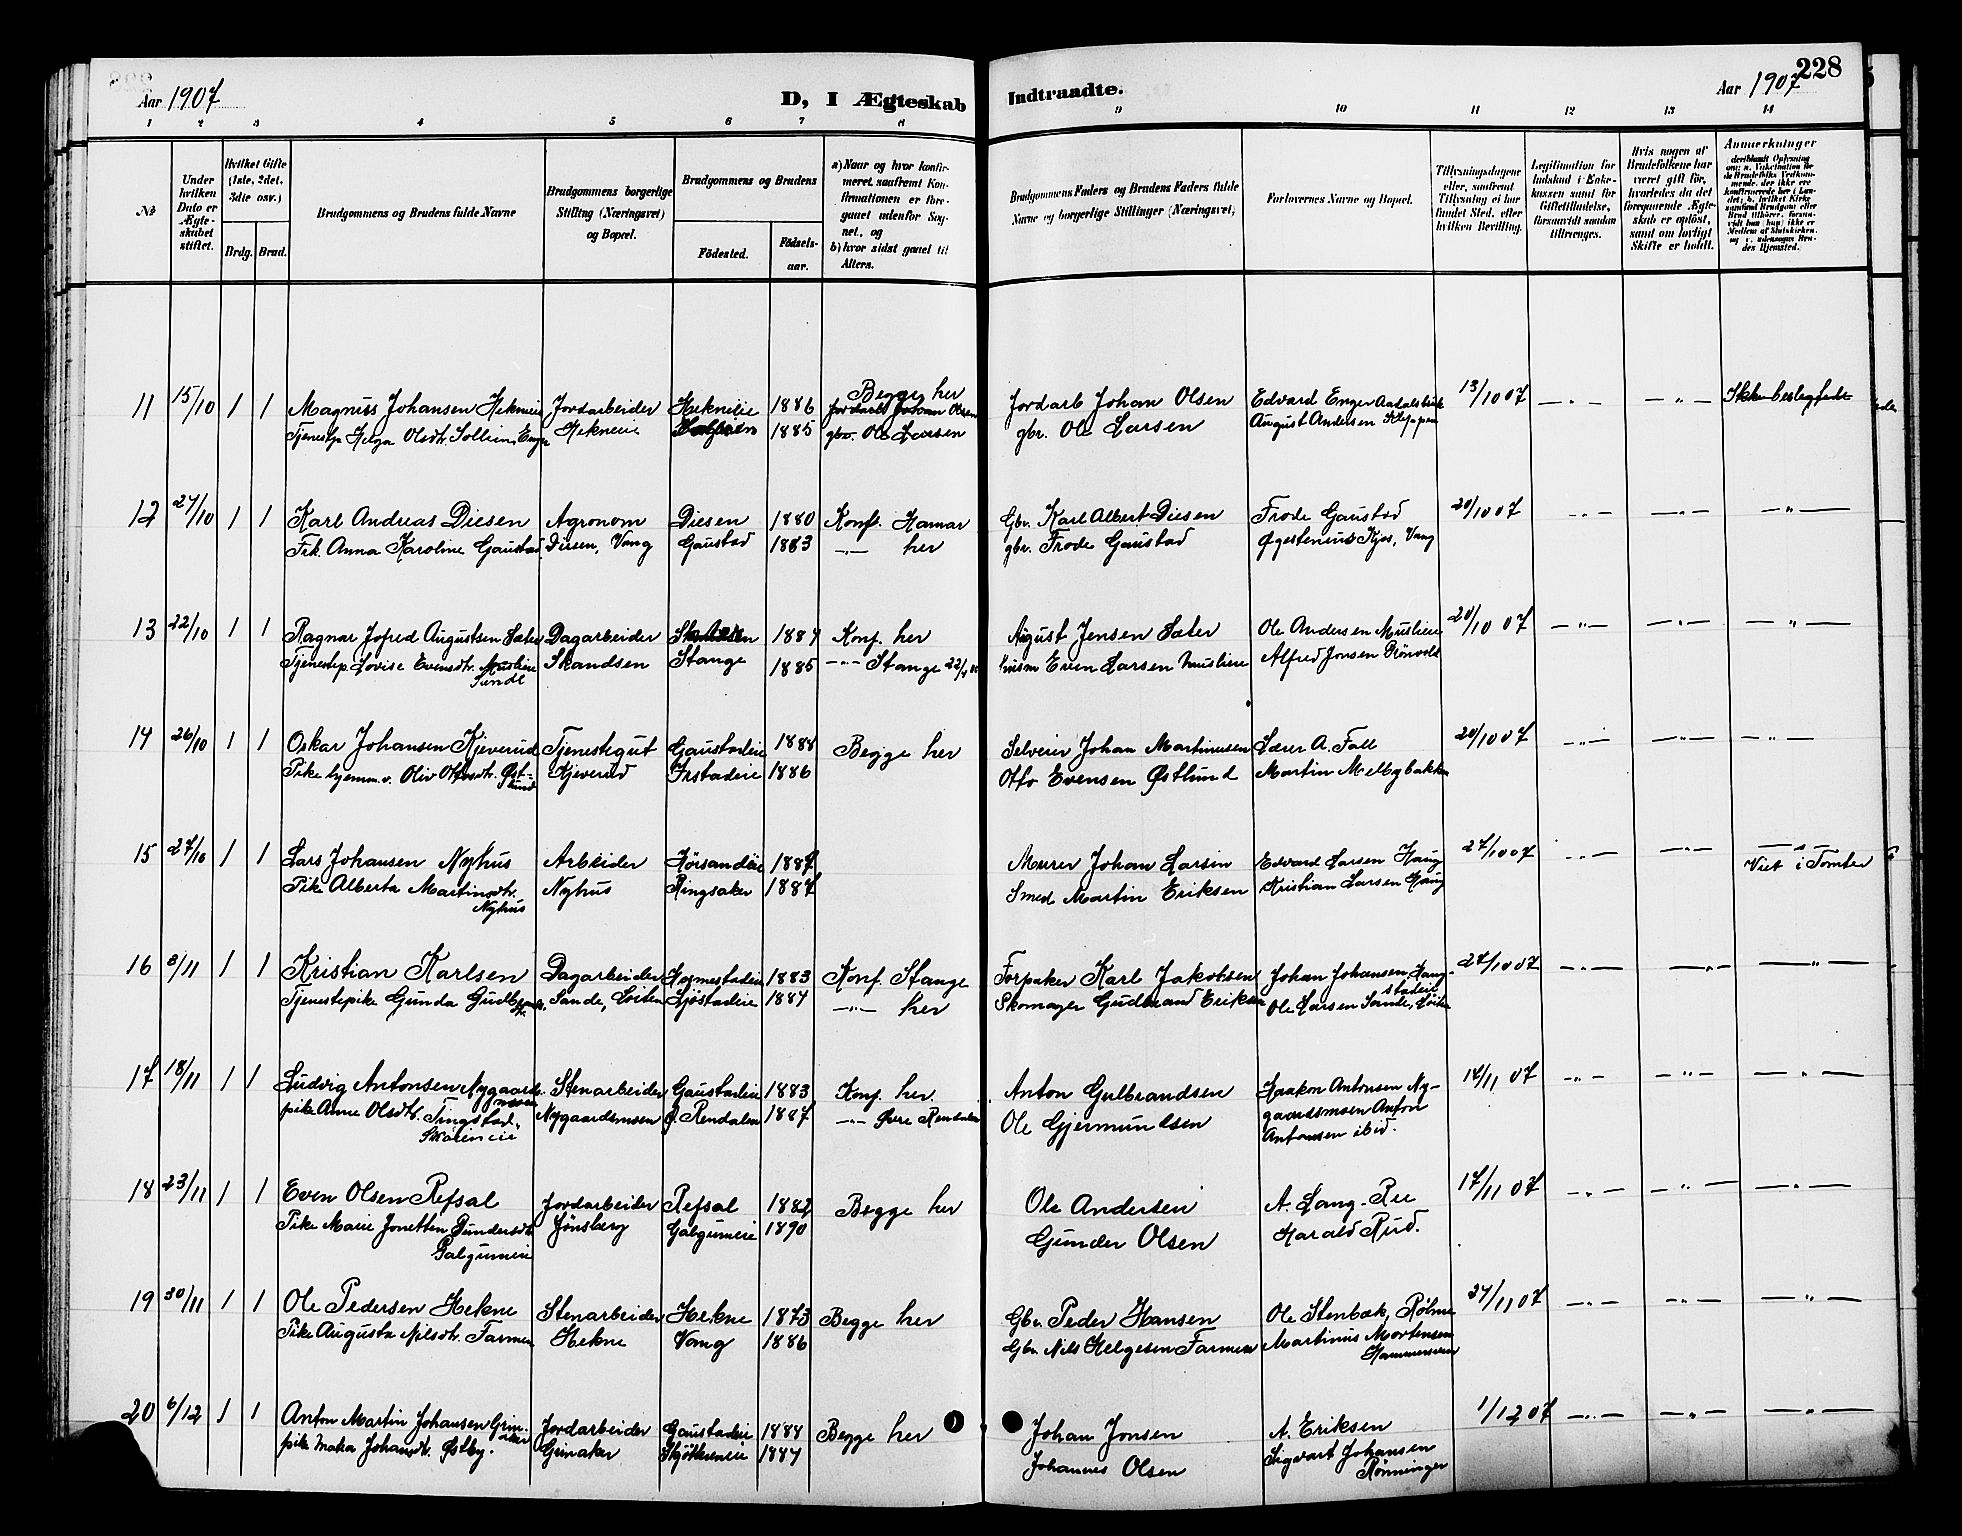 Aar 1907
D, I Ægteskab
Indtraadte.
Aar 1907
228
1 2 3 4 5 6 7 8 9 10 11 12 13 14
№
Under hvilken Dato er Ægteskabet stiftet.
Hvilket Gifte (1ste, 2det, 3die osv.)
Brdg. Brud.
Brudgommens og Brudens fulde Navne
Brudgommens borgerlige Stilling (Næringsvei) og Bopæl.
Brudgommens og Brudens
Födested.
Födsels-aar.
a) Naar og hvor konfirmeret, saafremt Konfirmationen er foregaaet udenfor Sognet, og
b) hvor sidst gaaet til Alters.
Brudgommens Faders og Brudens Faders fulde Navne og borgerlige Stillinger (Næringsvei)
Forlovernes Navne og Bopæl.
Tillysningsdagene eller, saafremt Tillysning ei har fundet Sted, efter hvilken Bevilling.
Legitimation for Indskud i Enkekassen samt for Giftetilladelse, forsaavidt saadan tiltrænges.
Hvis nogen af Brudefolkene har været gift før, hvorledes da det foregaaende Ægteskab er opløst, samt om lovligt Skifte er holdt.
Anmærkninger
11 15/10 1 1 Magnus Johansen Hekneeie Jordarbeider Hekneeie 1886 Begge her Jordarb Johan Olsen Edvard Enger 13/10 07 Ikke beslegtede
Tjenestp. Helga Olsdtr. Solliem, Enger Hekneie 1885 gbr. Ole Larsen gbr. Ole Larsen August Andersen Kleppen
12 27/10 1 1 Karl Andreas Diesen Agronom Diesen 1880 Konf. Hamar Gbr. Karl Albert Diesen Frode Gaustad 20/10 07
Frk. Anna Karoline Gaustad Diesen, Vang Gaustad 1883 —"— her gbr. Frode Gaustad Kjos, Vang
13 22/10 1 1 Ragnar Jofred Augustsen Sæter Dagarbeider 1884 Konf. her August Jensen Sæter Ole Andersen Muslien 20/10 07
Tjenestep. Lovise Evensdtr. Muslien Skandsen Stange 1885 —"— Stange Even Larsen Muslien Alfred Jonsen Rönvold
14 26/10 1 1 Oskar Johansen Kjeverud Tjenestegut Gaustadeie 1888 Begge her Selveier Johan Martinusen Lærer A. Fall 20/10 07
Pike hjemmev. Oliv Ottosdtr. Østlund Kjeverud Ifstadeie 1886 Otto Evensen Østlund Martin Melbybakken
15 27/10 1 1 Lars Johansen Nyhus Arbeider Hörsandeie 1887 Murer Johan Larsen Edvard Larsen Haug 27/10 07
Pike Alberta Martinsdtr. Nyhus Nyhus Ringsaker 1887 Smed Martin Eriksen Kristian Larsen Haug Viet i Tomter
16 3/11 1 1 Kristian Karlsen Dagarbeider 1883 Konf. Stange Forpakter Karl Jakobsen Johan Johansen 27/10 07
Tjenestepike Gunda Sande, Löiten 1884 —"— her Skomager Gudbrand Eriksen Ole Larsen Sande, Löiten
17 18/11 1 1 Ludvig Antonsen Nygaards- Stenarbeider Gaustadeie 1883 Konf. her. Anton Gulbrandsen Haakon Antonsen Ny- 10/11 07
pike Anne Olsdtr. Tingstad, Nygaardsmosen Ø. Rendalen 1887 —"— Øvre Rendalen Ole Gjermundsen gaardsmosen Anton
Skolineie Antonsen ibid.
18 23/11 1 1 Even Olsen Refsal Jordarbeider Refsal 1882 Begge her Ole Andersen A. Lang-Ree 17/11 07
Pike Marie Jonetten Gundersdtr. Jönsberg Galgumeie 1890 Gunder Olsen Harald Rud.
Galgumeie
19 30/11 1 1 Ole Pedersen Hekne Stenarbeider Hekne 1873 Begge her Gbr. Peder Hansen Ole Stenbæk, 24/11 07
Pike Augusta Nilsdtr. Farmen Hekne Vang 1886 Gbr. Nils Helgesen Farmen Martinus Mortensen
Hammersveen
20 6/12 1 1 Anton Martin Johansen Grimaker Jordarbeider Gaustadeie 1884 Begge her Johan Jonsen A. Eriksen 1/12 07
pike Johansdtr. Østby. Grimaker 1884 Johannes Olsen Sigvart Johansen
Rönninger